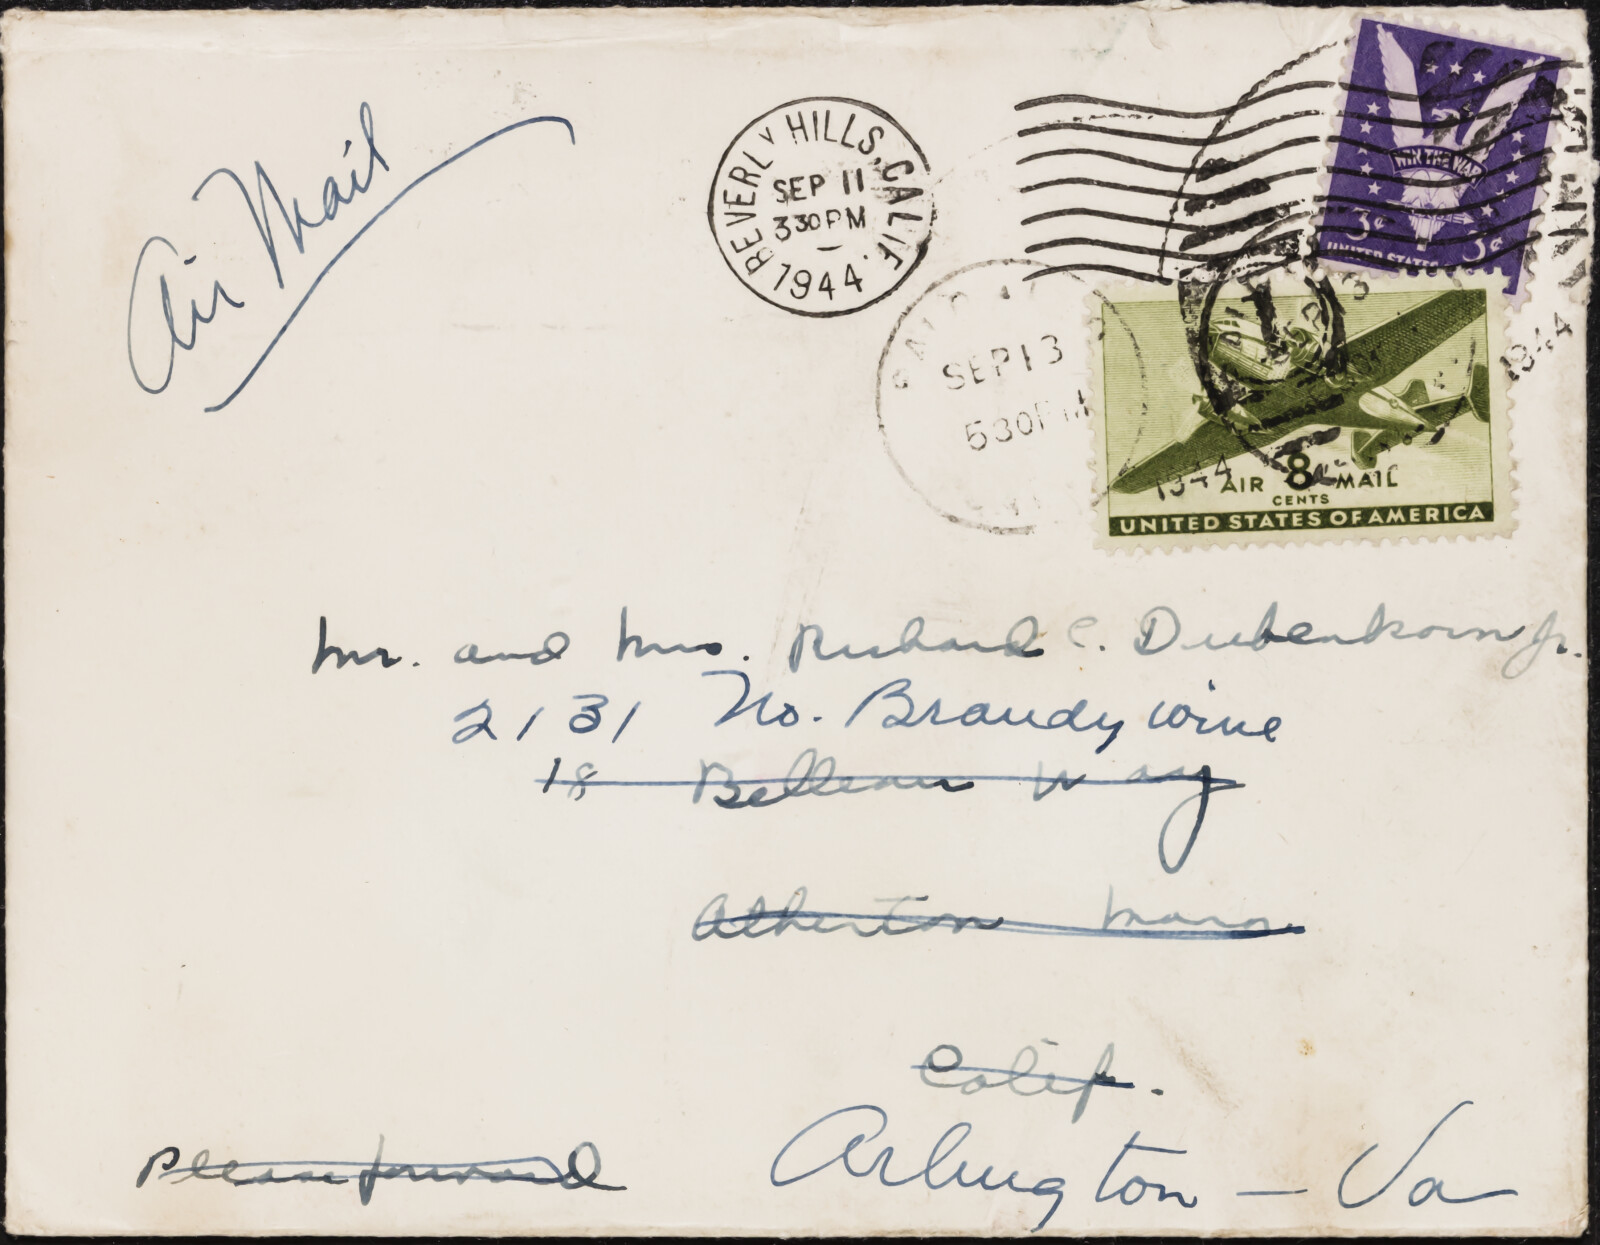 Air Mail
BEVERLY HILLS, CALIF.
SEP 11
3 30 PM
1944
WIN THE WAR
3¢ 3¢
UNITED STATES
SEP 13
5 30 PM
1944
1944
AIR 8 MAIL
CENTS
UNITED STATES OF AMERICA
Mr. and Mrs. Richard C. Diebenkorn Jr.
2131 No. Brandywine
18 Belleau Way
Atherton Manor
Calif.
Please forward
Arlington — Va